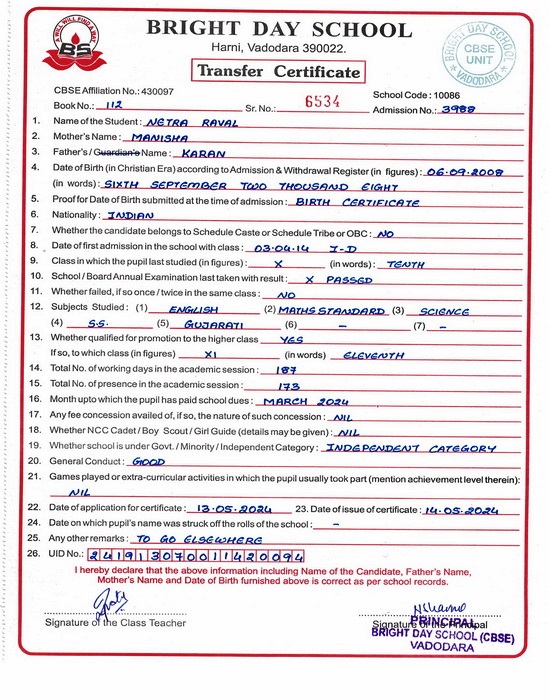 A WILL WILL FIND A WAY
BS
BRIGHT DAY SCHOOL
Harni, Vadodara 390022.
BRIGHT DAY SCHOOL
CBSE
UNIT
VADODARA
Transfer Certificate
CBSE Affiliation No.: 430097
School Code : 10086
Book No.: 112 Sr. No.: 6534 Admission No.: 3988
1. Name of the Student : NETRA RAVAL
2. Mother's Name : MANISHA
3. Father's / Guardian's Name : KARAN
4. Date of Birth (in Christian Era) according to Admission & Withdrawal Register (in figures) : 06.09.2008
(in words) : SIXTH SEPTEMBER TWO THOUSAND EIGHT
5. Proof for Date of Birth submitted at the time of admission : BIRTH CERTIFICATE
6. Nationality : INDIAN
7. Whether the candidate belongs to Schedule Caste or Schedule Tribe or OBC : NO
8. Date of first admission in the school with class : 03.04.14 I-D
9. Class in which the pupil last studied (in figures) : X (in words) : TENTH
10. School / Board Annual Examination last taken with result : X PASSED
11. Whether failed, if so once / twice in the same class : NO
12. Subjects Studied : (1) ENGLISH (2) MATHS STANDARD (3) SCIENCE
(4) S.S. (5) GUJARATI (6) – (7) –
13. Whether qualified for promotion to the higher class YES
If so, to which class (in figures) XI (in words) ELEVENTH
14. Total No. of working days in the academic session : 187
15. Total No. of presence in the academic session : 173
16. Month upto which the pupil has paid school dues : MARCH 2024
17. Any fee concession availed of, if so, the nature of such concession : NIL
18. Whether NCC Cadet / Boy Scout / Girl Guide (details may be given) : NIL
19. Whether school is under Govt. / Minority / Independent Category : INDEPENDENT CATEGORY
20. General Conduct : GOOD
21. Games played or extra-curricular activities in which the pupil usually took part (mention achievement level therein) :
NIL
22. Date of application for certificate : 13.05.2024 23. Date of issue of certificate : 14.05.2024
24. Date on which pupil's name was struck off the rolls of the school : –
25. Any other remarks : TO GO ELSEWHERE
26. UID No.: 241913070011420094
I hereby declare that the above information including Name of the Candidate, Father's Name,
Mother's Name and Date of Birth furnished above is correct as per school records.
Signature of the Class Teacher
Signature of the Principal
PRINCIPAL
BRIGHT DAY SCHOOL (CBSE)
VADODARA